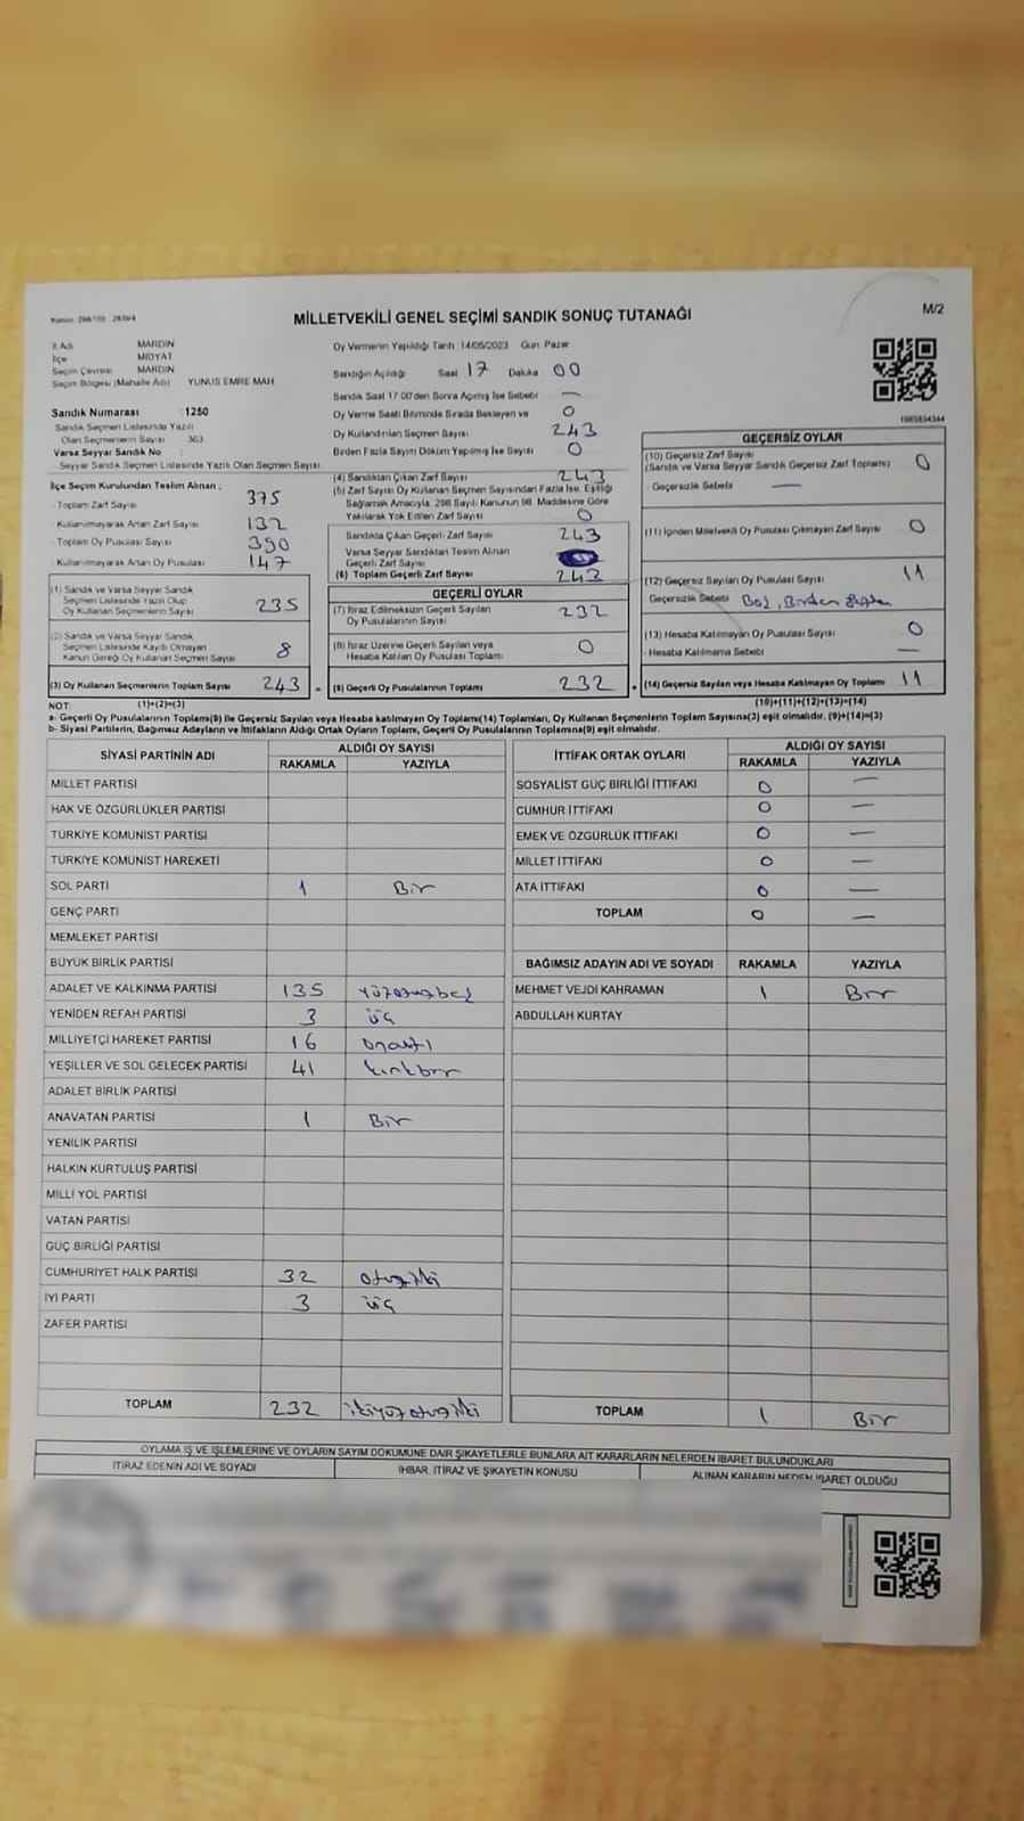 MİLLETVEKİLİ GENEL SEÇİMİ SANDIK SONUÇ TUTANAĞI
M/2
İl Adı MARDİN
İlçe MİDYAT
Seçim Çevresi MARDİN
Seçim Bölgesi (Mahalle Adı) YUNUS EMRE MAH
Sandık Numarası 1250
Sandık Seçmen Listesinde Yazılı
Olan Seçmenlerin Sayısı 363
Varsa Seyyar Sandık No
Seyyar Sandık Seçmen Listesinde Yazılı Olan Seçmen Sayısı
İlçe Seçim Kurulundan Teslim Alınan
Toplam Zarf Sayısı 375
Kullanılmayarak Artan Zarf Sayısı 132
Toplam Oy Pusulası Sayısı 390
Kullanılmayarak Artan Oy Pusulası 147
(1) Sandık ve Varsa Seyyar Sandık
Seçmen Listesinde Yazılı Olup
Oy Kullanan Seçmenlerin Sayısı 235
(2) Sandık ve Varsa Seyyar Sandık
Seçmen Listesinde Kayıtlı Olmayan
Kanun Gereği Oy Kullanan Seçmen Sayısı 8
(3) Oy Kullanan Seçmenlerin Toplam Sayısı 243
(1)+(2)=(3)
Oy Vermenin Yapıldığı Tarih : 14/05/2023 Gün: Pazar
Sandığın Açıldığı Saat 17 Dakika 00
Sandık Saat 17.00'den Sonra Açılmış İse Sebebi —
Oy Verme Saati Bitiminde Sırada Bekleyen ve 0
Oy Kullandırılan Seçmen Sayısı 243
Birden Fazla Sayım Döküm Yapılmış İse Sayısı 0
(4) Sandıktan Çıkan Zarf Sayısı 243
(5) Zarf Sayısı Oy Kullanan Seçmen Sayısından Fazla İse, Eşitliği
Sağlamak Amacıyla; 298 Sayılı Kanunun 98. Maddesine Göre
Yakılarak Yok Edilen Zarf Sayısı 0
Sandıkta Çıkan Geçerli Zarf Sayısı 243
Varsa Seyyar Sandıktan Teslim Alınan
Geçerli Zarf Sayısı
(6) Toplam Geçerli Zarf Sayısı 243
GEÇERLİ OYLAR
(7) İtiraz Edilmeksizin Geçerli Sayılan
Oy Pusulalarının Sayısı 232
(8) İtiraz Üzerine Geçerli Sayılan veya
Hesaba Katılan Oy Pusulası Toplamı 0
(9) Geçerli Oy Pusulalarının Toplamı 232
GEÇERSİZ OYLAR
(10) Geçersiz Zarf Sayısı
(Sandık ve Varsa Seyyar Sandık Geçersiz Zarf Toplamı) 0
Geçersizlik Sebebi —
(11) İçinden Milletvekili Oy Pusulası Çıkmayan Zarf Sayısı 0
(12) Geçersiz Sayılan Oy Pusulası Sayısı 11
Geçersizlik Sebebi Boş, Birden
(13) Hesaba Katılmayan Oy Pusulası Sayısı 0
Hesaba Katılmama Sebebi —
(14) Geçersiz Sayılan veya Hesaba Katılmayan Oy Toplamı 11
(10)+(11)+(12)+(13)=(14)
NOT:
a- Geçerli Oy Pusulalarının Toplamı(9) ile Geçersiz Sayılan veya Hesaba katılmayan Oy Toplamı(14) Toplamları, Oy Kullanan Seçmenlerin Toplam Sayısına(3) eşit olmalıdır. (9)+(14)=(3)
b- Siyasi Partilerin, Bağımsız Adayların ve İttifakların Aldığı Ortak Oyların Toplamı, Geçerli Oy Pusulalarının Toplamına(9) eşit olmalıdır.
SİYASİ PARTİNİN ADI ALDIĞI OY SAYISI
RAKAMLA YAZIYLA
MİLLET PARTİSİ
HAK VE ÖZGÜRLÜKLER PARTİSİ
TÜRKİYE KOMÜNİST PARTİSİ
TÜRKİYE KOMÜNİST HAREKETİ
SOL PARTİ 1 Bir
GENÇ PARTİ
MEMLEKET PARTİSİ
BÜYÜK BİRLİK PARTİSİ
ADALET VE KALKINMA PARTİSİ 135 yüzotuzbeş
YENİDEN REFAH PARTİSİ 3 üç
MİLLİYETÇİ HAREKET PARTİSİ 16 onaltı
YEŞİLLER VE SOL GELECEK PARTİSİ 41 kırkbir
ADALET BİRLİK PARTİSİ
ANAVATAN PARTİSİ 1 Bir
YENİLİK PARTİSİ
HALKIN KURTULUŞ PARTİSİ
MİLLİ YOL PARTİSİ
VATAN PARTİSİ
GÜÇ BİRLİĞİ PARTİSİ
CUMHURİYET HALK PARTİSİ 32 otuziki
İYİ PARTİ 3 üç
ZAFER PARTİSİ
TOPLAM 232 ikiyüzotuziki
İTTİFAK ORTAK OYLARI ALDIĞI OY SAYISI
RAKAMLA YAZIYLA
SOSYALİST GÜÇ BİRLİĞİ İTTİFAKI 0 —
CUMHUR İTTİFAKI 0 —
EMEK VE ÖZGÜRLÜK İTTİFAKI 0 —
MİLLET İTTİFAKI 0 —
ATA İTTİFAKI 0 —
TOPLAM 0 —
BAĞIMSIZ ADAYIN ADI VE SOYADI RAKAMLA YAZIYLA
MEHMET VEJDİ KAHRAMAN 1 Bir
ABDULLAH KURTAY
TOPLAM 1 Bir
OYLAMA İŞ VE İŞLEMLERİNE VE OYLARIN SAYIM DÖKÜMÜNE DAİR ŞİKAYETLERLE BUNLARA AİT KARARLARIN NELERDEN İBARET BULUNDUKLARI
İTİRAZ EDENİN ADI VE SOYADI İHBAR, İTİRAZ VE ŞİKAYETİN KONUSU ALINAN KARARIN NEDEN İBARET OLDUĞU